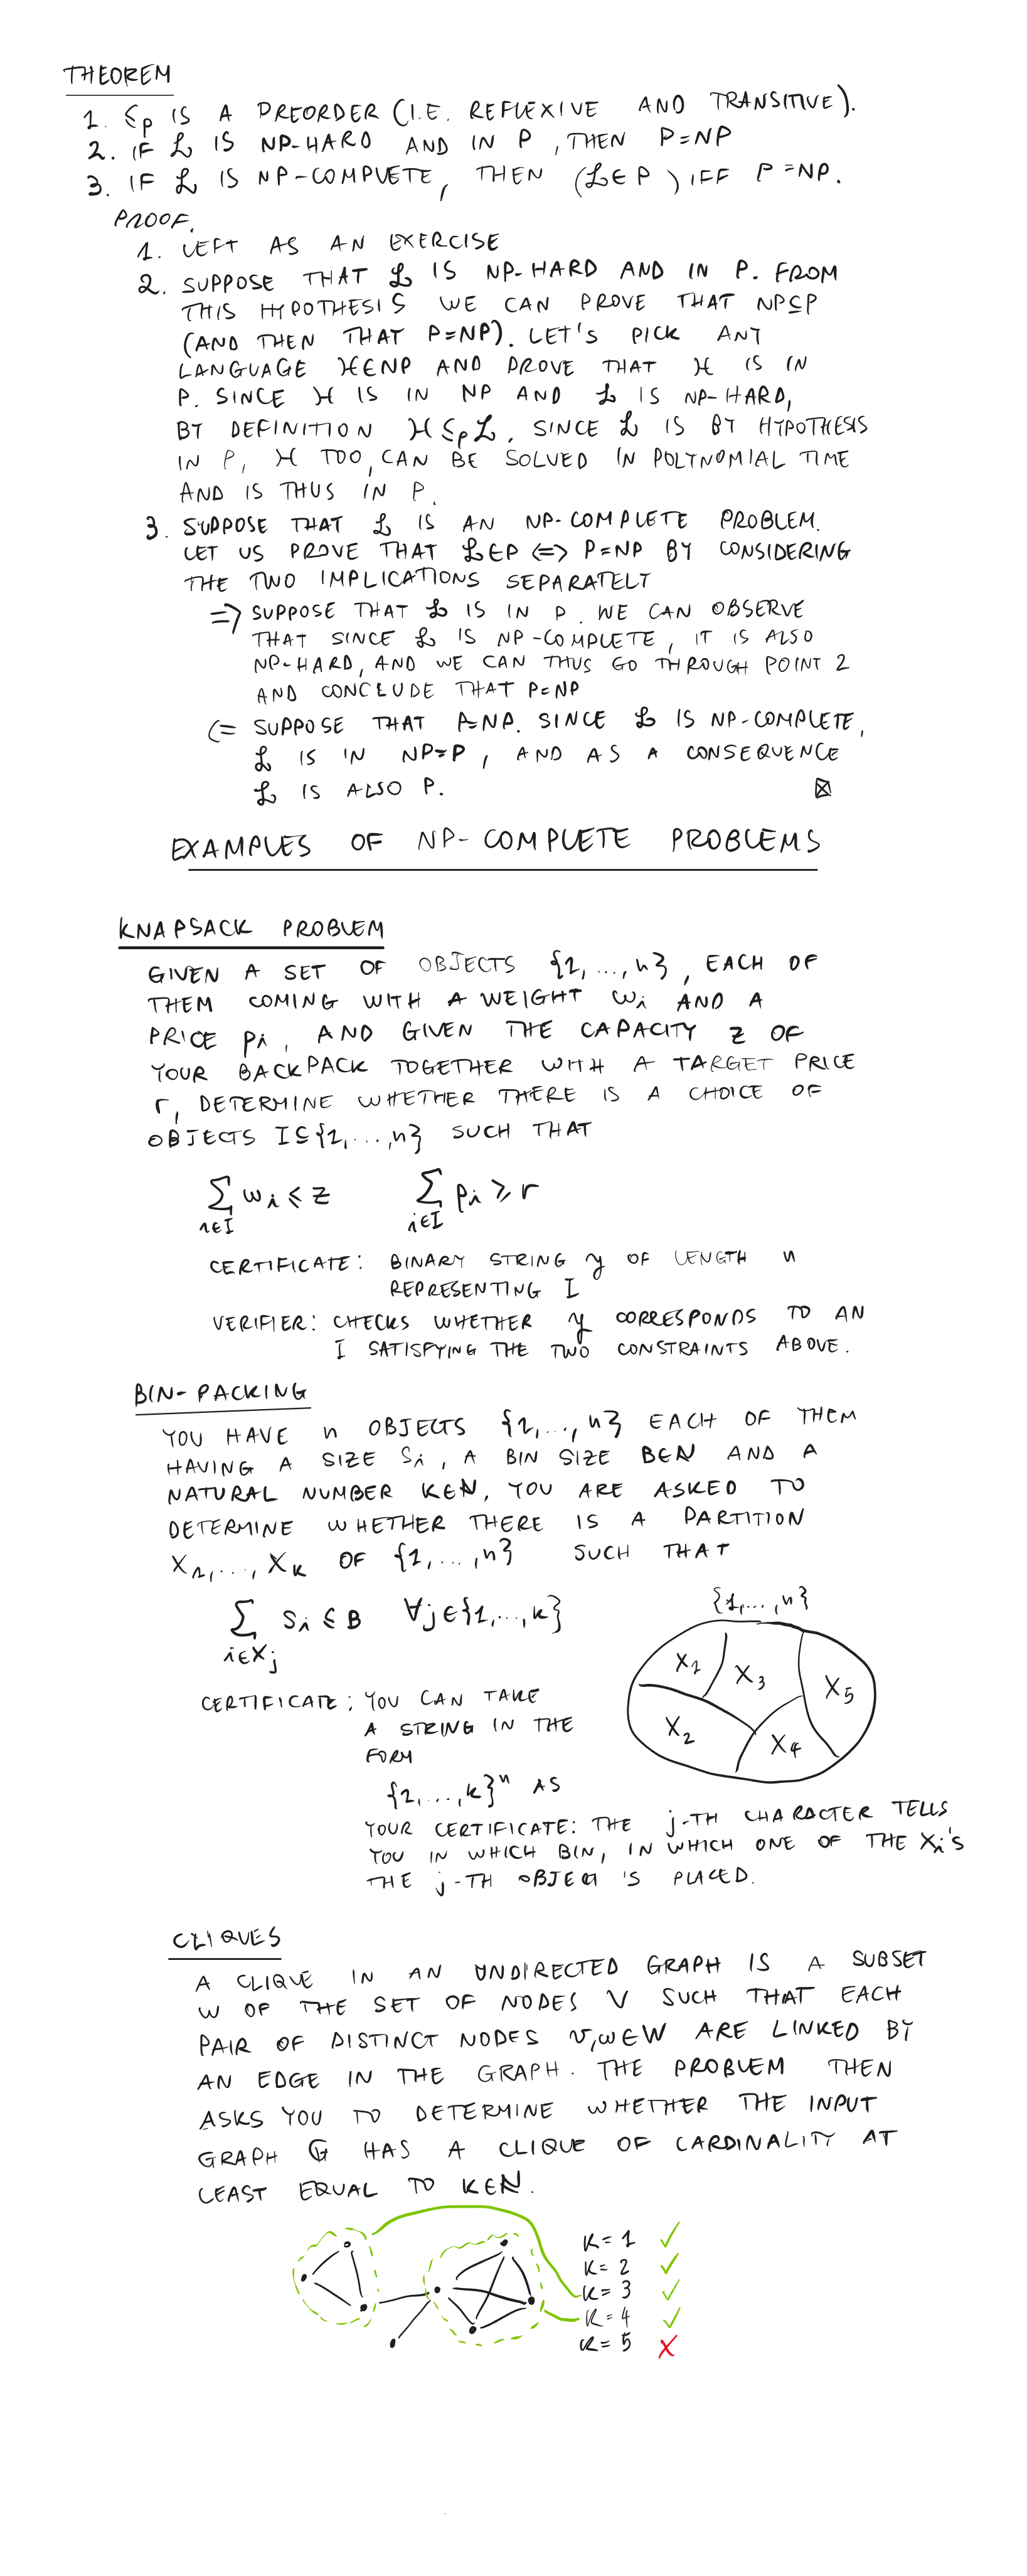 THEOREM
1. ≤p IS A PREORDER (I.E. REFLEXIVE AND TRANSITIVE).
2. IF ℒ IS NP-HARD AND IN P, THEN P=NP
3. IF ℒ IS NP-COMPLETE, THEN (ℒ∈P) IFF P=NP.
PROOF.
1. LEFT AS AN EXERCISE
2. SUPPOSE THAT ℒ IS NP-HARD AND IN P. FROM
THIS HYPOTHESIS WE CAN PROVE THAT NP⊆P
(AND THEN THAT P=NP). LET'S PICK ANY
LANGUAGE ℋ∈NP AND PROVE THAT ℋ IS IN
P. SINCE ℋ IS IN NP AND ℒ IS NP-HARD,
BY DEFINITION ℋ≤pℒ. SINCE ℒ IS BY HYPOTHESIS
IN P, ℋ TOO, CAN BE SOLVED IN POLYNOMIAL TIME
AND IS THUS IN P.
3. SUPPOSE THAT ℒ IS AN NP-COMPLETE PROBLEM.
LET US PROVE THAT ℒ∈P <=> P=NP BY CONSIDERING
THE TWO IMPLICATIONS SEPARATELY
=> SUPPOSE THAT ℒ IS IN P. WE CAN OBSERVE
THAT SINCE ℒ IS NP-COMPLETE, IT IS ALSO
NP-HARD, AND WE CAN THUS GO THROUGH POINT 2
AND CONCLUDE THAT P=NP
<= SUPPOSE THAT P=NP. SINCE ℒ IS NP-COMPLETE,
ℒ IS IN NP=P, AND AS A CONSEQUENCE
ℒ IS ALSO P. ⊠
EXAMPLES OF NP-COMPLETE PROBLEMS
KNAPSACK PROBLEM
GIVEN A SET OF OBJECTS {1,...,n}, EACH OF
THEM COMING WITH A WEIGHT wi AND A
PRICE pi, AND GIVEN THE CAPACITY z OF
YOUR BACKPACK TOGETHER WITH A TARGET PRICE
r, DETERMINE WHETHER THERE IS A CHOICE OF
OBJECTS I⊆{1,...,n} SUCH THAT
∑ i∈I wi ≤ z ∑ i∈I pi ≥ r
CERTIFICATE: BINARY STRING y OF LENGTH n
REPRESENTING I
VERIFIER: CHECKS WHETHER y CORRESPONDS TO AN
I SATISFYING THE TWO CONSTRAINTS ABOVE.
BIN-PACKING
YOU HAVE n OBJECTS {1,...,n} EACH OF THEM
HAVING A SIZE Si, A BIN SIZE B∈N AND A
NATURAL NUMBER K∈N, YOU ARE ASKED TO
DETERMINE WHETHER THERE IS A PARTITION
X1,..., XK OF {1,...,n} SUCH THAT
∑ i∈Xj Si ≤ B ∀j∈{1,...,k}
{1,...,n}
X1 X3 X5
X2 X4
CERTIFICATE: YOU CAN TAKE
A STRING IN THE
FORM
{1,...,k}ⁿ AS
YOUR CERTIFICATE: THE j-TH CHARACTER TELLS
YOU IN WHICH BIN, IN WHICH ONE OF THE Xi'S
THE j-TH OBJECT IS PLACED.
CLIQUES
A CLIQUE IN AN UNDIRECTED GRAPH IS A SUBSET
W OF THE SET OF NODES V SUCH THAT EACH
PAIR OF DISTINCT NODES v,w∈W ARE LINKED BY
AN EDGE IN THE GRAPH. THE PROBLEM THEN
ASKS YOU TO DETERMINE WHETHER THE INPUT
GRAPH G HAS A CLIQUE OF CARDINALITY AT
LEAST EQUAL TO K∈N.
K=1 ✓
K=2 ✓
K=3 ✓
K=4 ✓
K=5 ✗